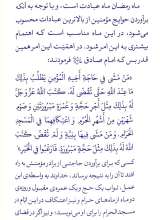 ماه رمضان ماه عبادت است، و با توجه به آنکه
برآوردن حوایج مؤمنین از بالاترین عبادات محسوب
می‌شود، در این ماه مناسب است که اهتمام
بیشتری به این امر شود. در اهمّیّت این امر همین
بس که امام صادق فرمودند:
«مَنْ مَشَى فِي حَاجَةِ أَخِيهِ الْمُؤْمِنِ يَطْلُبُ بِذَلِكَ
مَا عِنْدَ اللَّهِ حَتَّى تُقْضَى لَهُ، كَتَبَ اللَّهُ عَزَّ وَجَلَّ
لَهُ بِذَلِكَ مِثْلَ أَجْرِ حَجَّةٍ وَعُمْرَةٍ مَبْرُورَتَيْنِ وَصَوْمِ
شَهْرَيْنِ مِنْ أَشْهُرِ الْحُرُمِ وَاعْتِكَافِهِمَا فِي الْمَسْجِدِ
الْحَرَامِ. وَمَنْ مَشَى فِيهَا بِنِيَّةٍ وَلَمْ تُقْضَ كَتَبَ
اللَّهُ لَهُ بِذَلِكَ مِثْلَ حَجَّةٍ مَبْرُورَةٍ. فَارْغَبُوا فِي الْخَيْرِ»
کسی که برای برآوردن حاجتی از برادر مؤمنش به راه
افتد تا آن را به نتیجه برساند، خداوند به واسطه‌ی این
عمل، ثواب یک حج و یک عمره‌ی مقبول و روزه‌ی
دو ماه از ماه‌های حرام و نیز اعتکاف در این ایام در
مسجدالحرام را برای او می‌نویسد؛ و نیز اگر در قضای